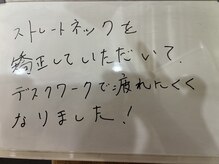 ストレートネックを
矯正していただいて、
デスクワークで疲れにくく
なりました!